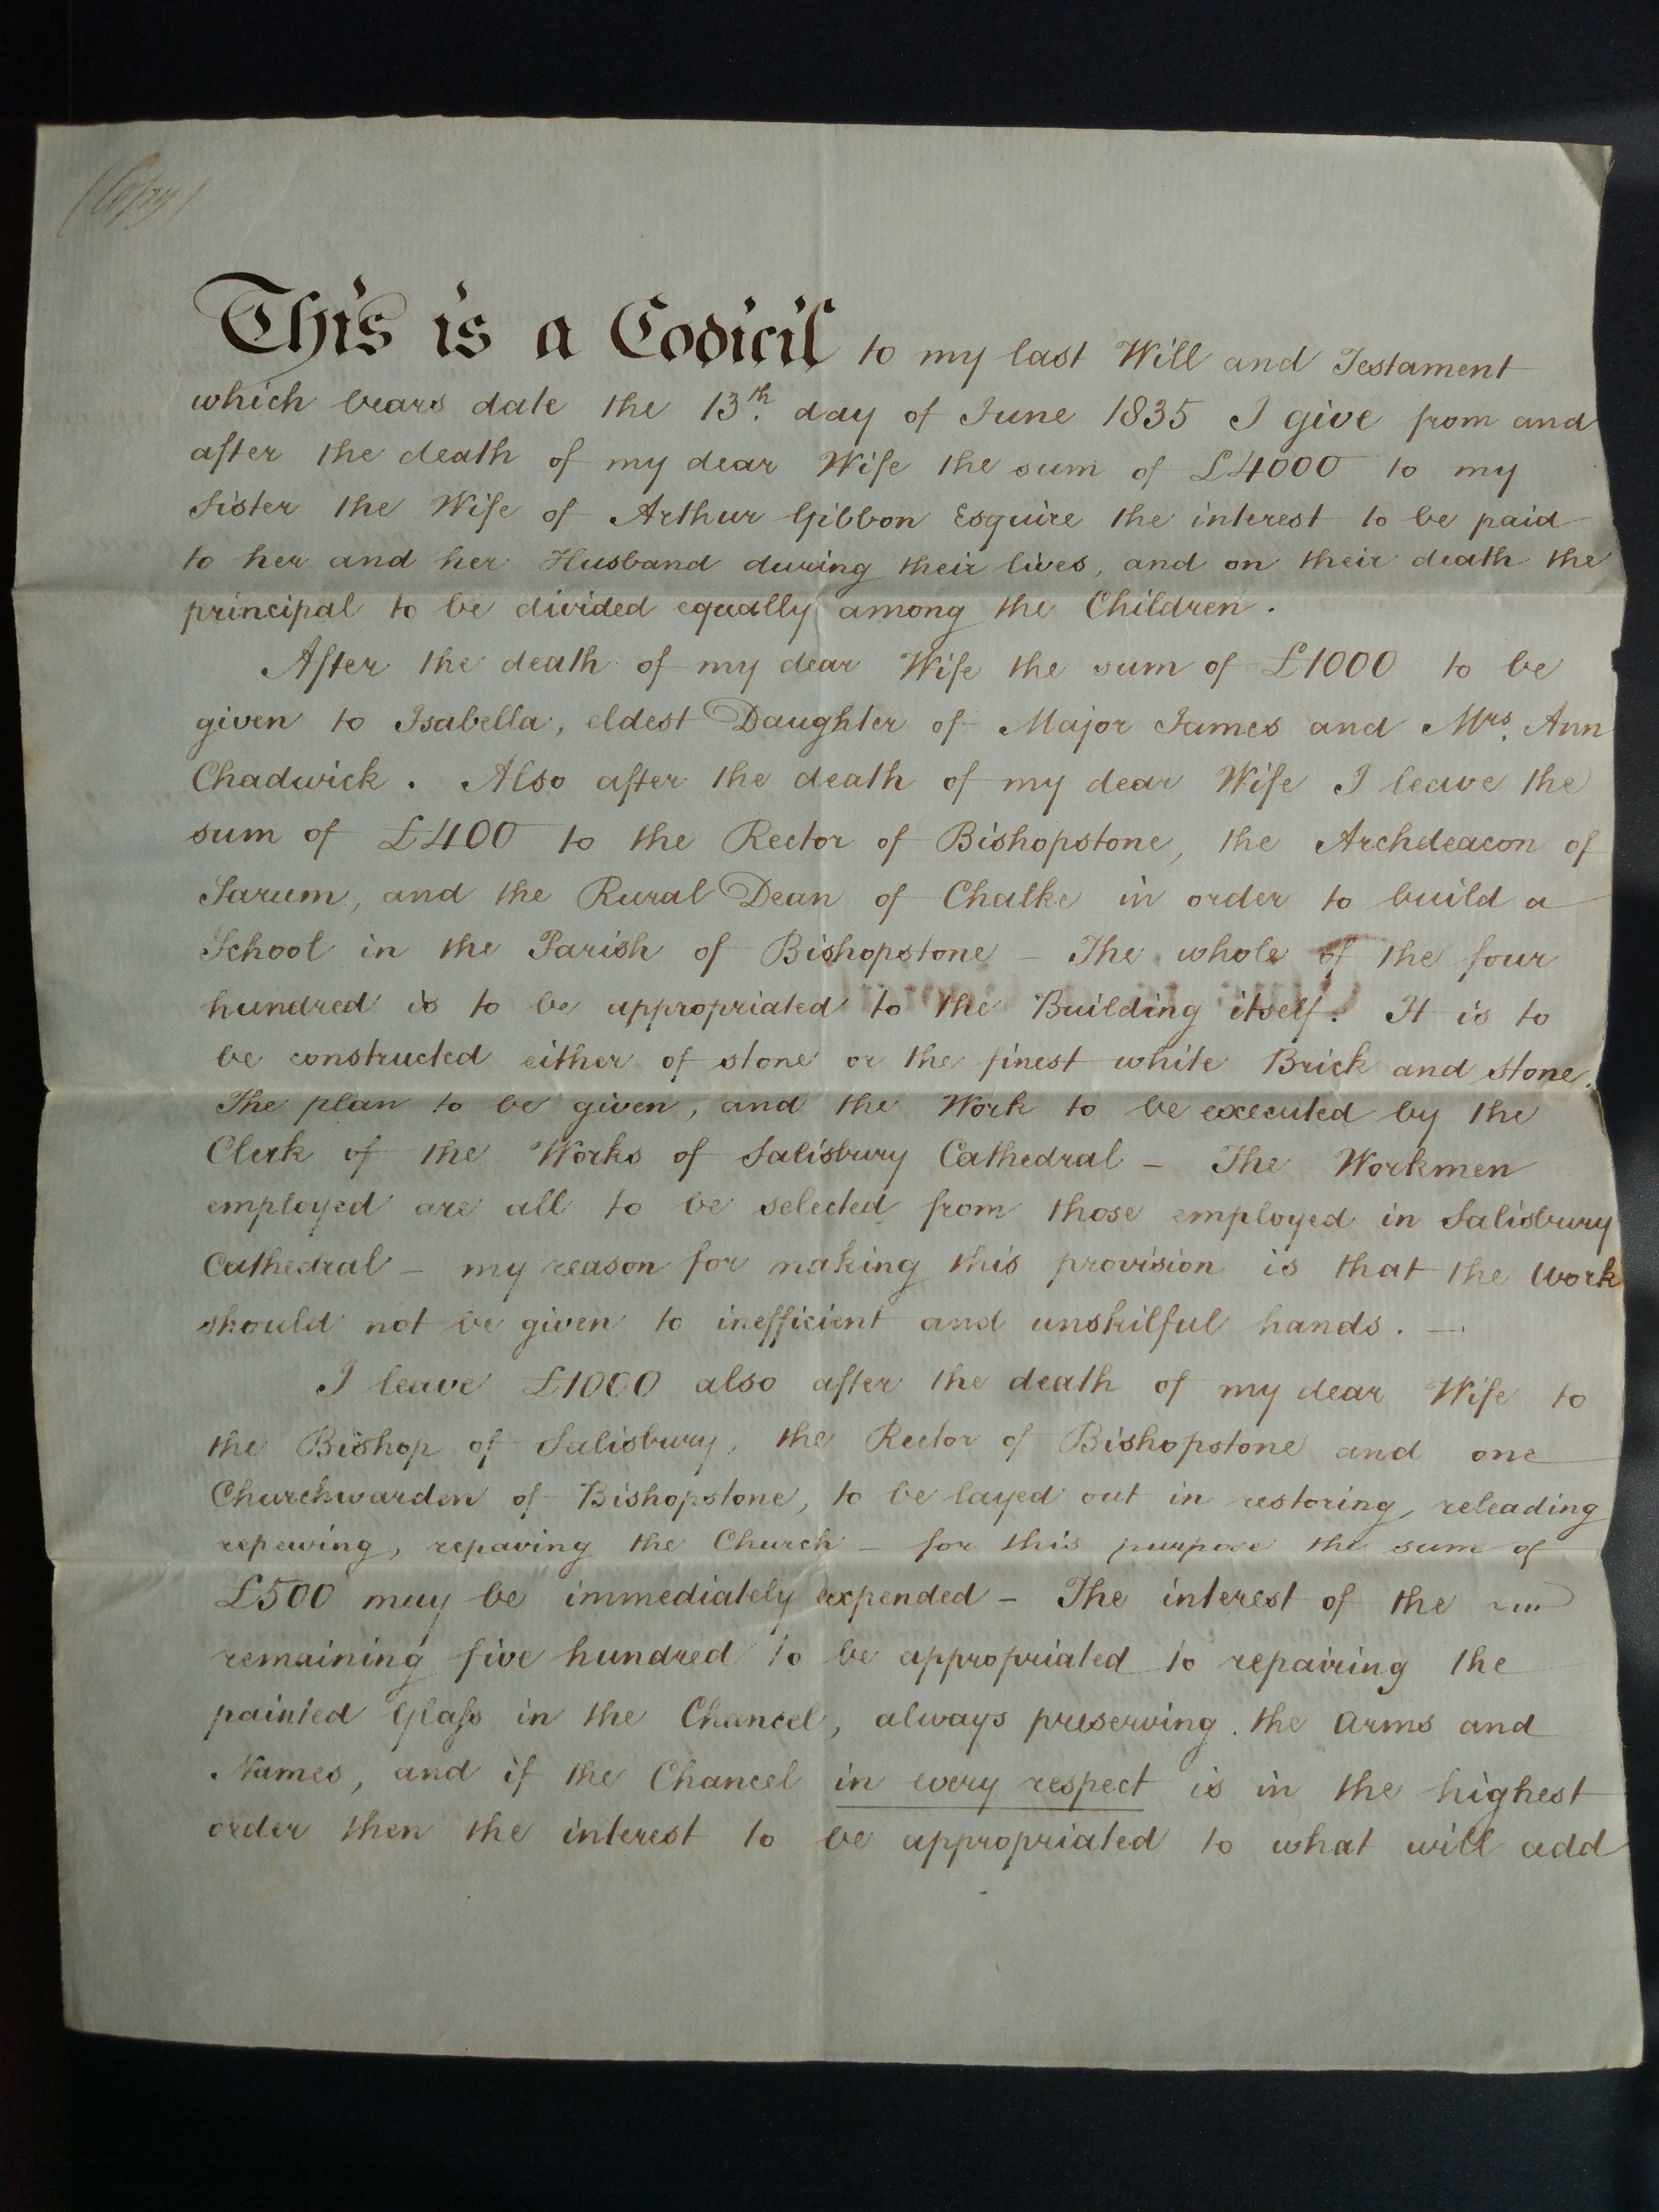 (Copy)
This is a Codicil to my last Will and Testament
which bears date the 13th. day of June 1835 I give from and
after the death of my dear Wife the sum of £4000 to my
Sister the Wife of Arthur Gibbon Esquire the interest to be paid
to her and her Husband during their lives, and on their death the
principal to be divided equally among the Children.
After the death of my dear Wife the sum of £1000 to be
given to Isabella, eldest Daughter of Major James and Mrs. Ann
Chadwick. Also after the death of my dear Wife I leave the
sum of £400 to the Rector of Bishopstone, the Archdeacon of
Sarum, and the Rural Dean of Chalke in order to build a
School in the Parish of Bishopstone – The whole of the four
hundred is to be appropriated to the Building itself. It is to
be constructed either of stone or the finest white Brick and stone.
The plan to be given, and the Work to be executed by the
Clerk of the Works of Salisbury Cathedral – The Workmen
employed are all to be selected from those employed in Salisbury
Cathedral – my reason for making this provision is that the Work
should not be given to inefficient and unskilful hands. —
I leave £1000 also after the death of my dear Wife to
the Bishop of Salisbury, the Rector of Bishopstone and one
Churchwarden of Bishopstone, to be layed out in restoring, releading
repewing, repaving the Church – for this purpose the sum of
£500 may be immediately expended – The interest of the
remaining five hundred to be appropriated to repairing the
painted Glass in the Chancel, always preserving the Arms and
Names, and if the Chancel in every respect is in the highest
order then the interest to be appropriated to what will add